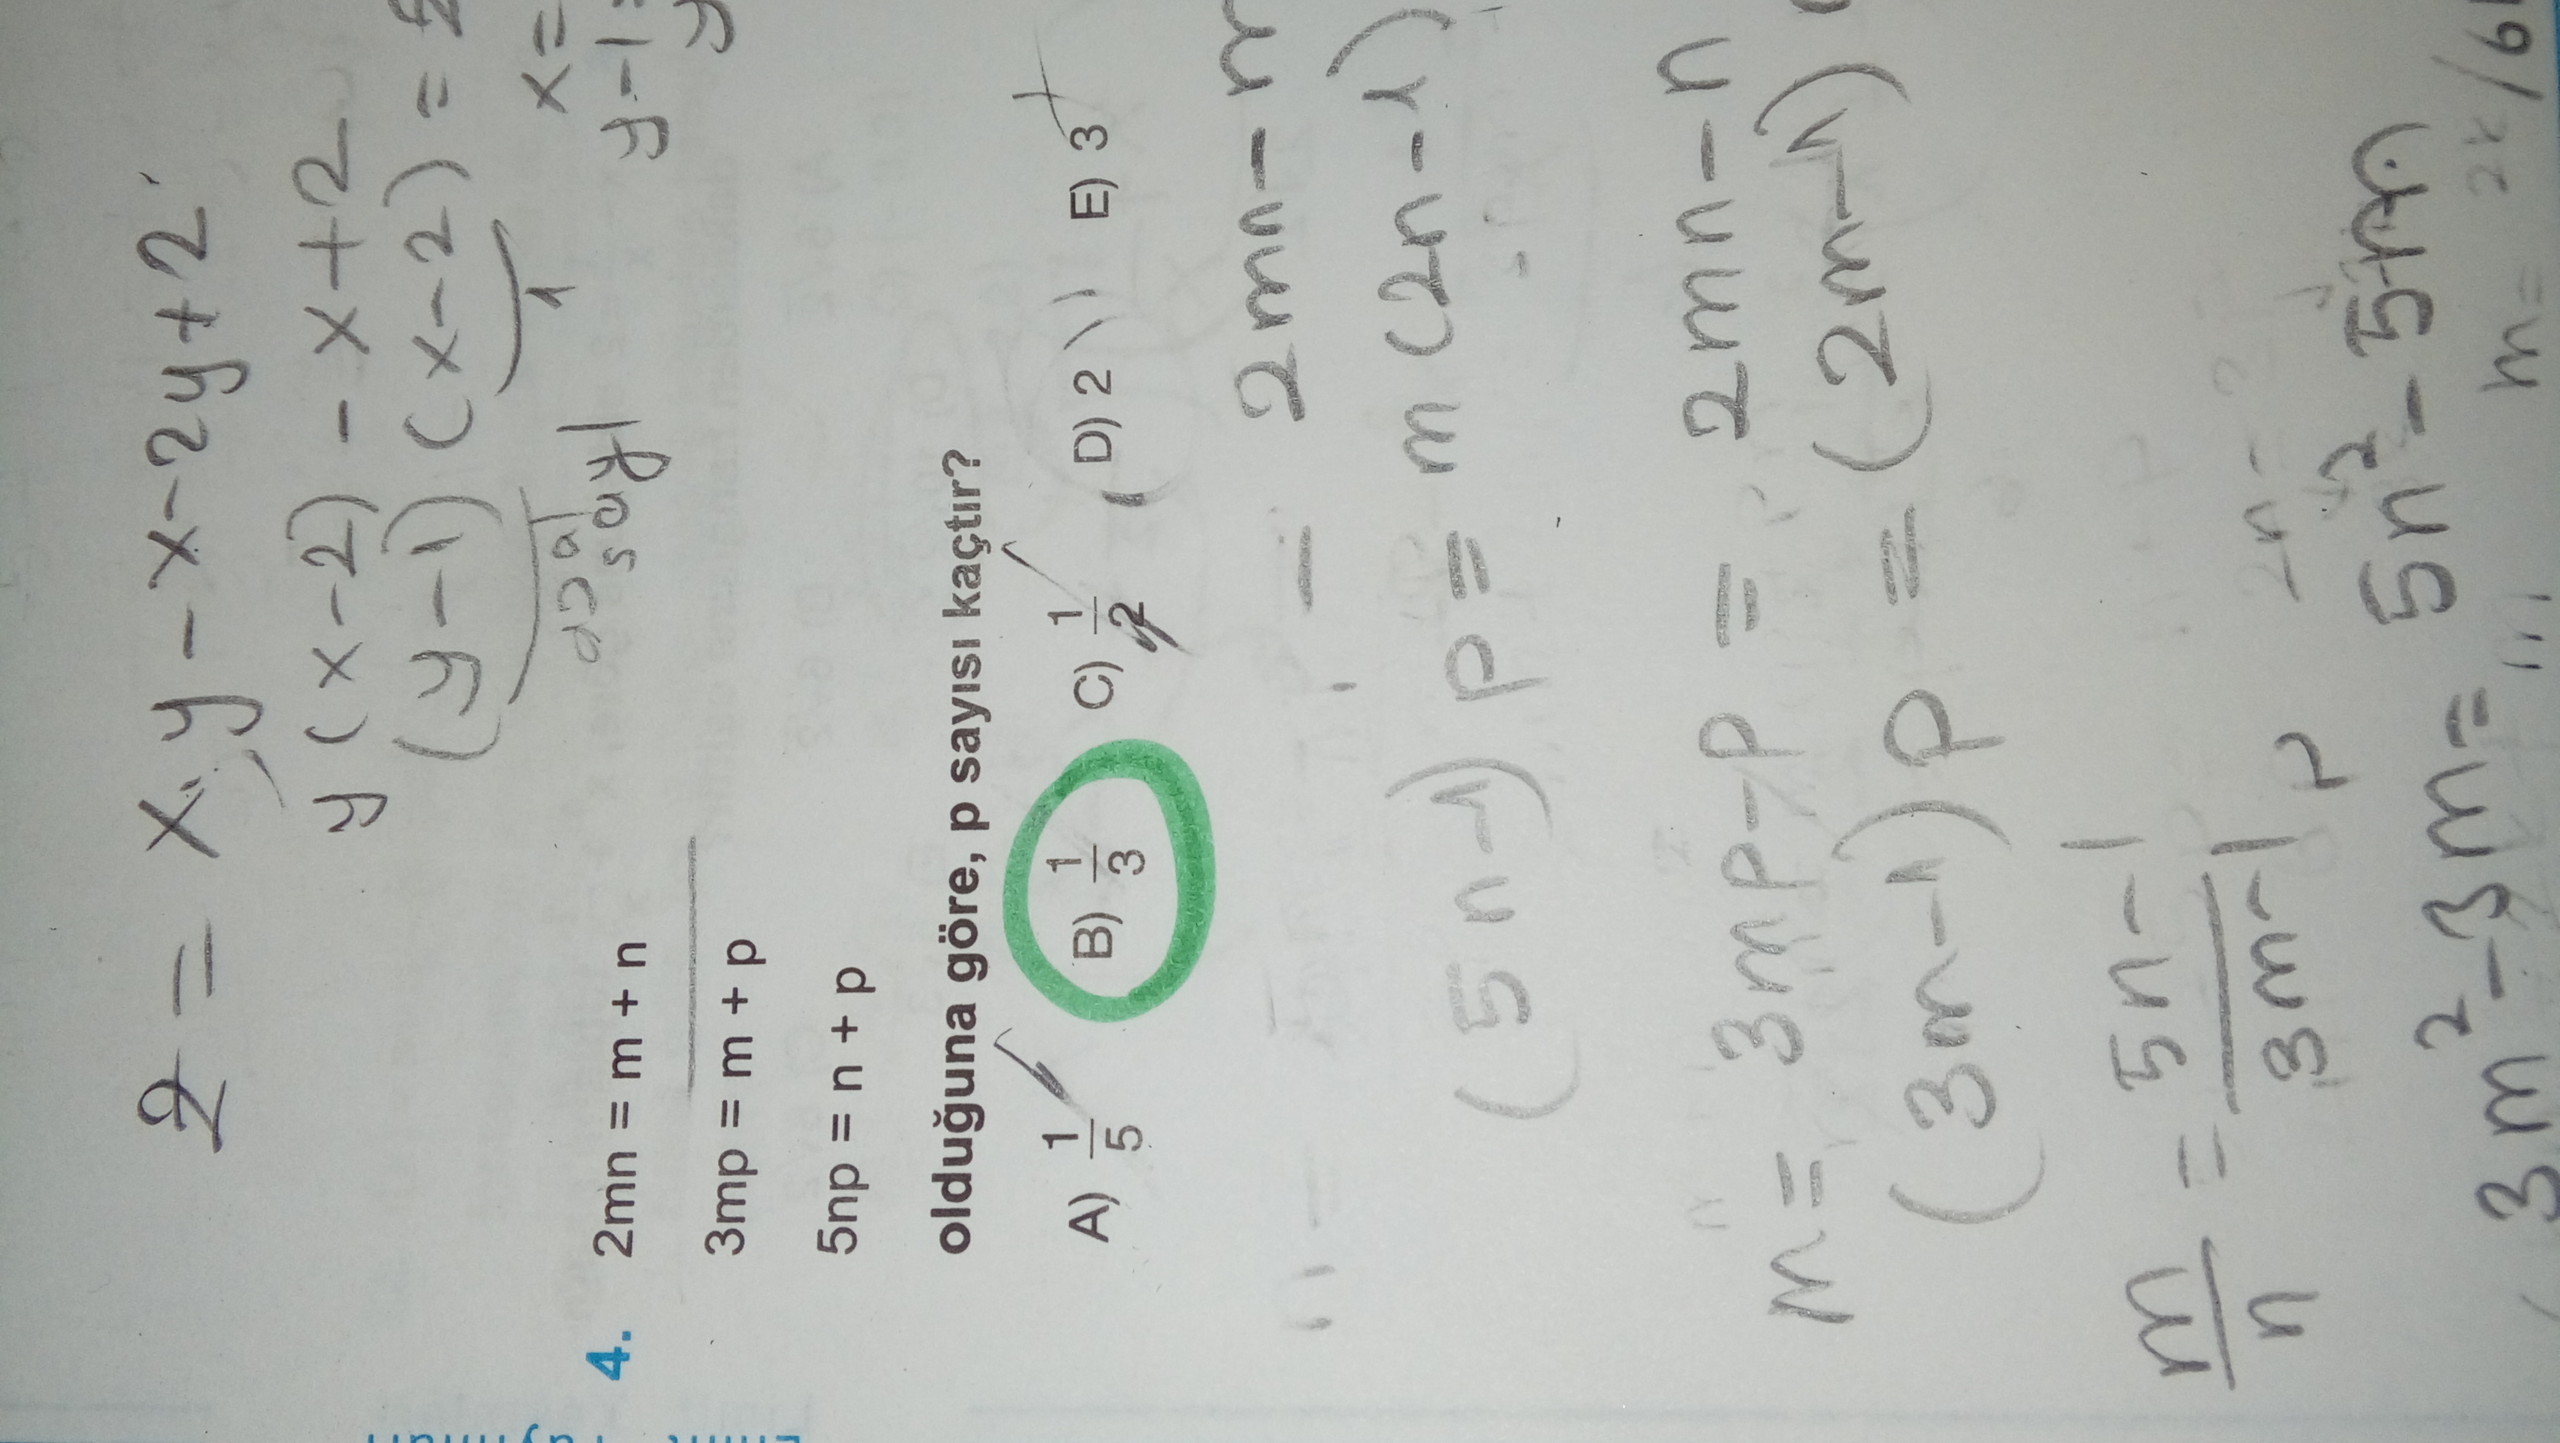 2 = x.y - x - 2y + 2
y(x-2) - x + 2
(y-1)(x-2) =
1
x=
doğal
sayı
y-1
y
4. 2mn = m + n
3mp = m + p
5np = n + p
olduğuna göre, p sayısı kaçtır?
A) 1/5 B) 1/3 C) 1/2 D) 2 E) 3
2mn - m
(5n-1) p = m (2n-1)
m = 3mp - p = 2mn - n
(3m-1) p = (2m-1)
m/n = 5n-1/3m-1
3m² - 3m = 5n² - 5n
m =